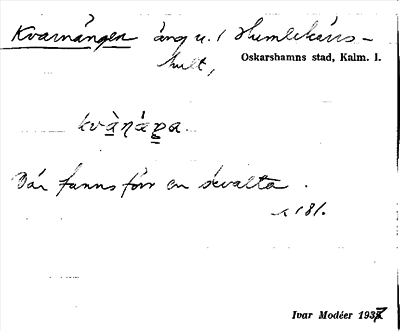 Kvarnängen äng u. / Humlekärrs-
hult,
Oskarshamns stad, Kalm. l.
Där fanns förr en skvalta.
Ivar Modéer 1937